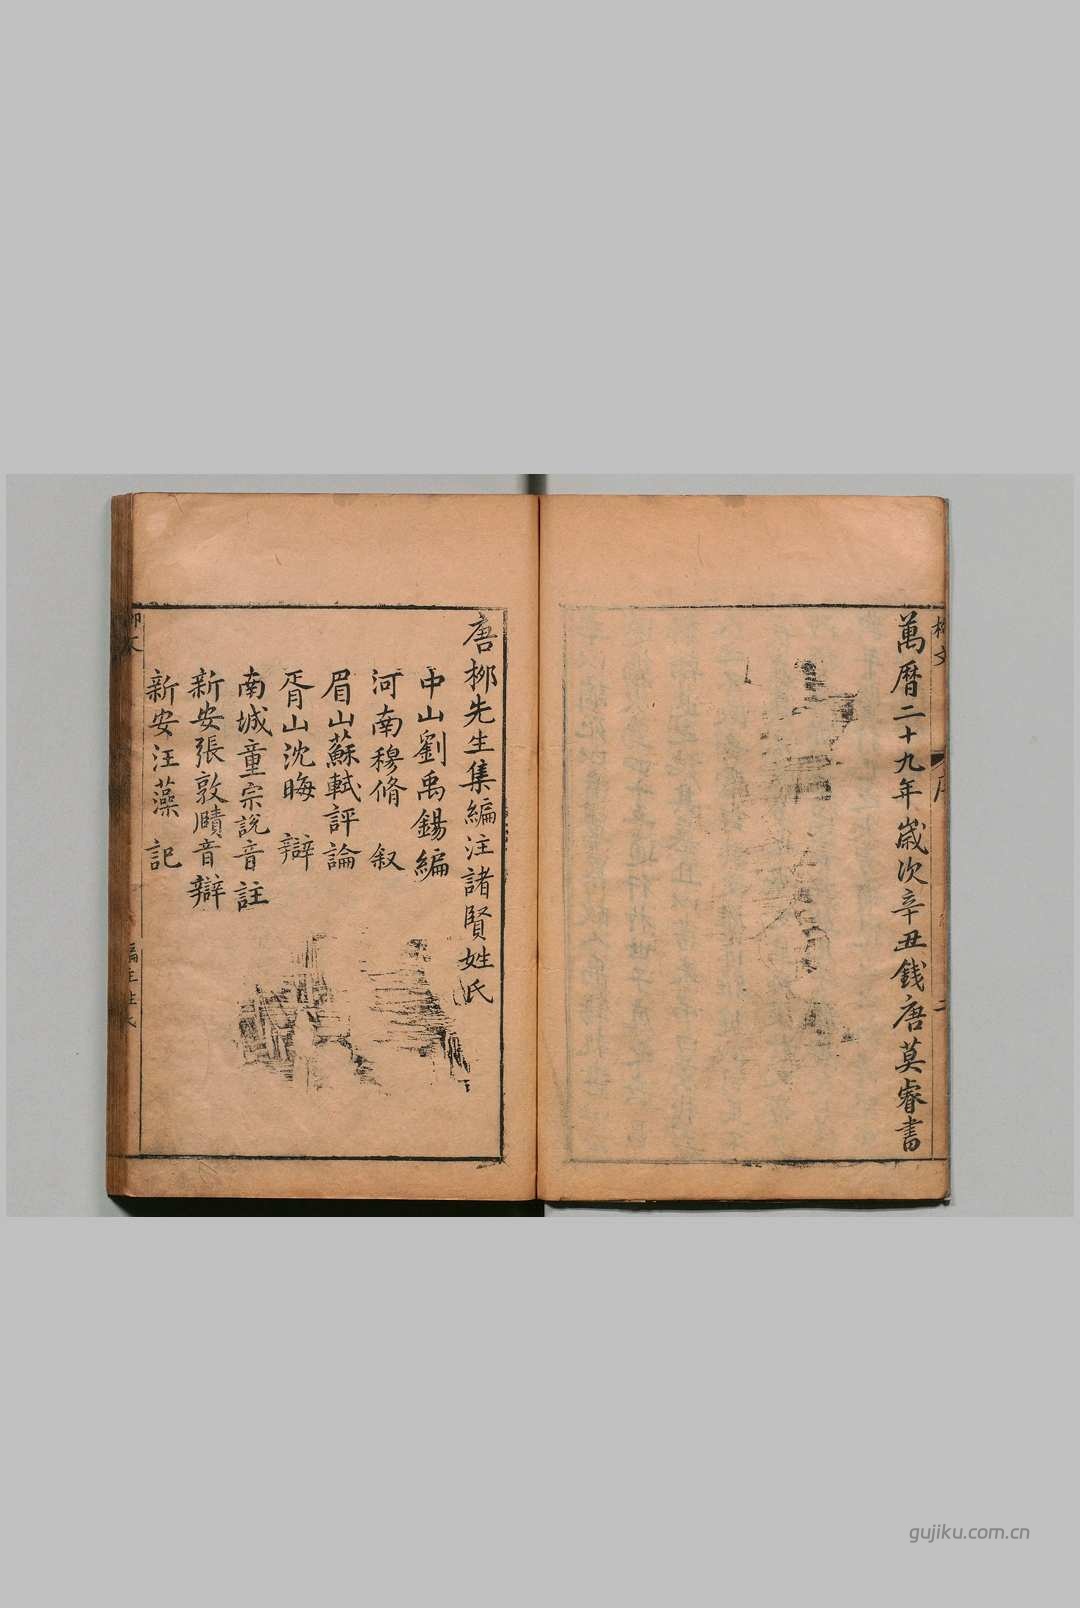 萬曆二十九年歲次辛丑錢唐莫睿書
柳文
序
二
唐柳先生集編注諸賢姓氏
中山劉禹錫編
河南穆脩 叙
眉山蘇軾評論
胥山沈晦 辯
南城童宗說音註
新安張敦頤音辯
新安汪藻 記
柳文
編注姓氏
gujiku.com.cn